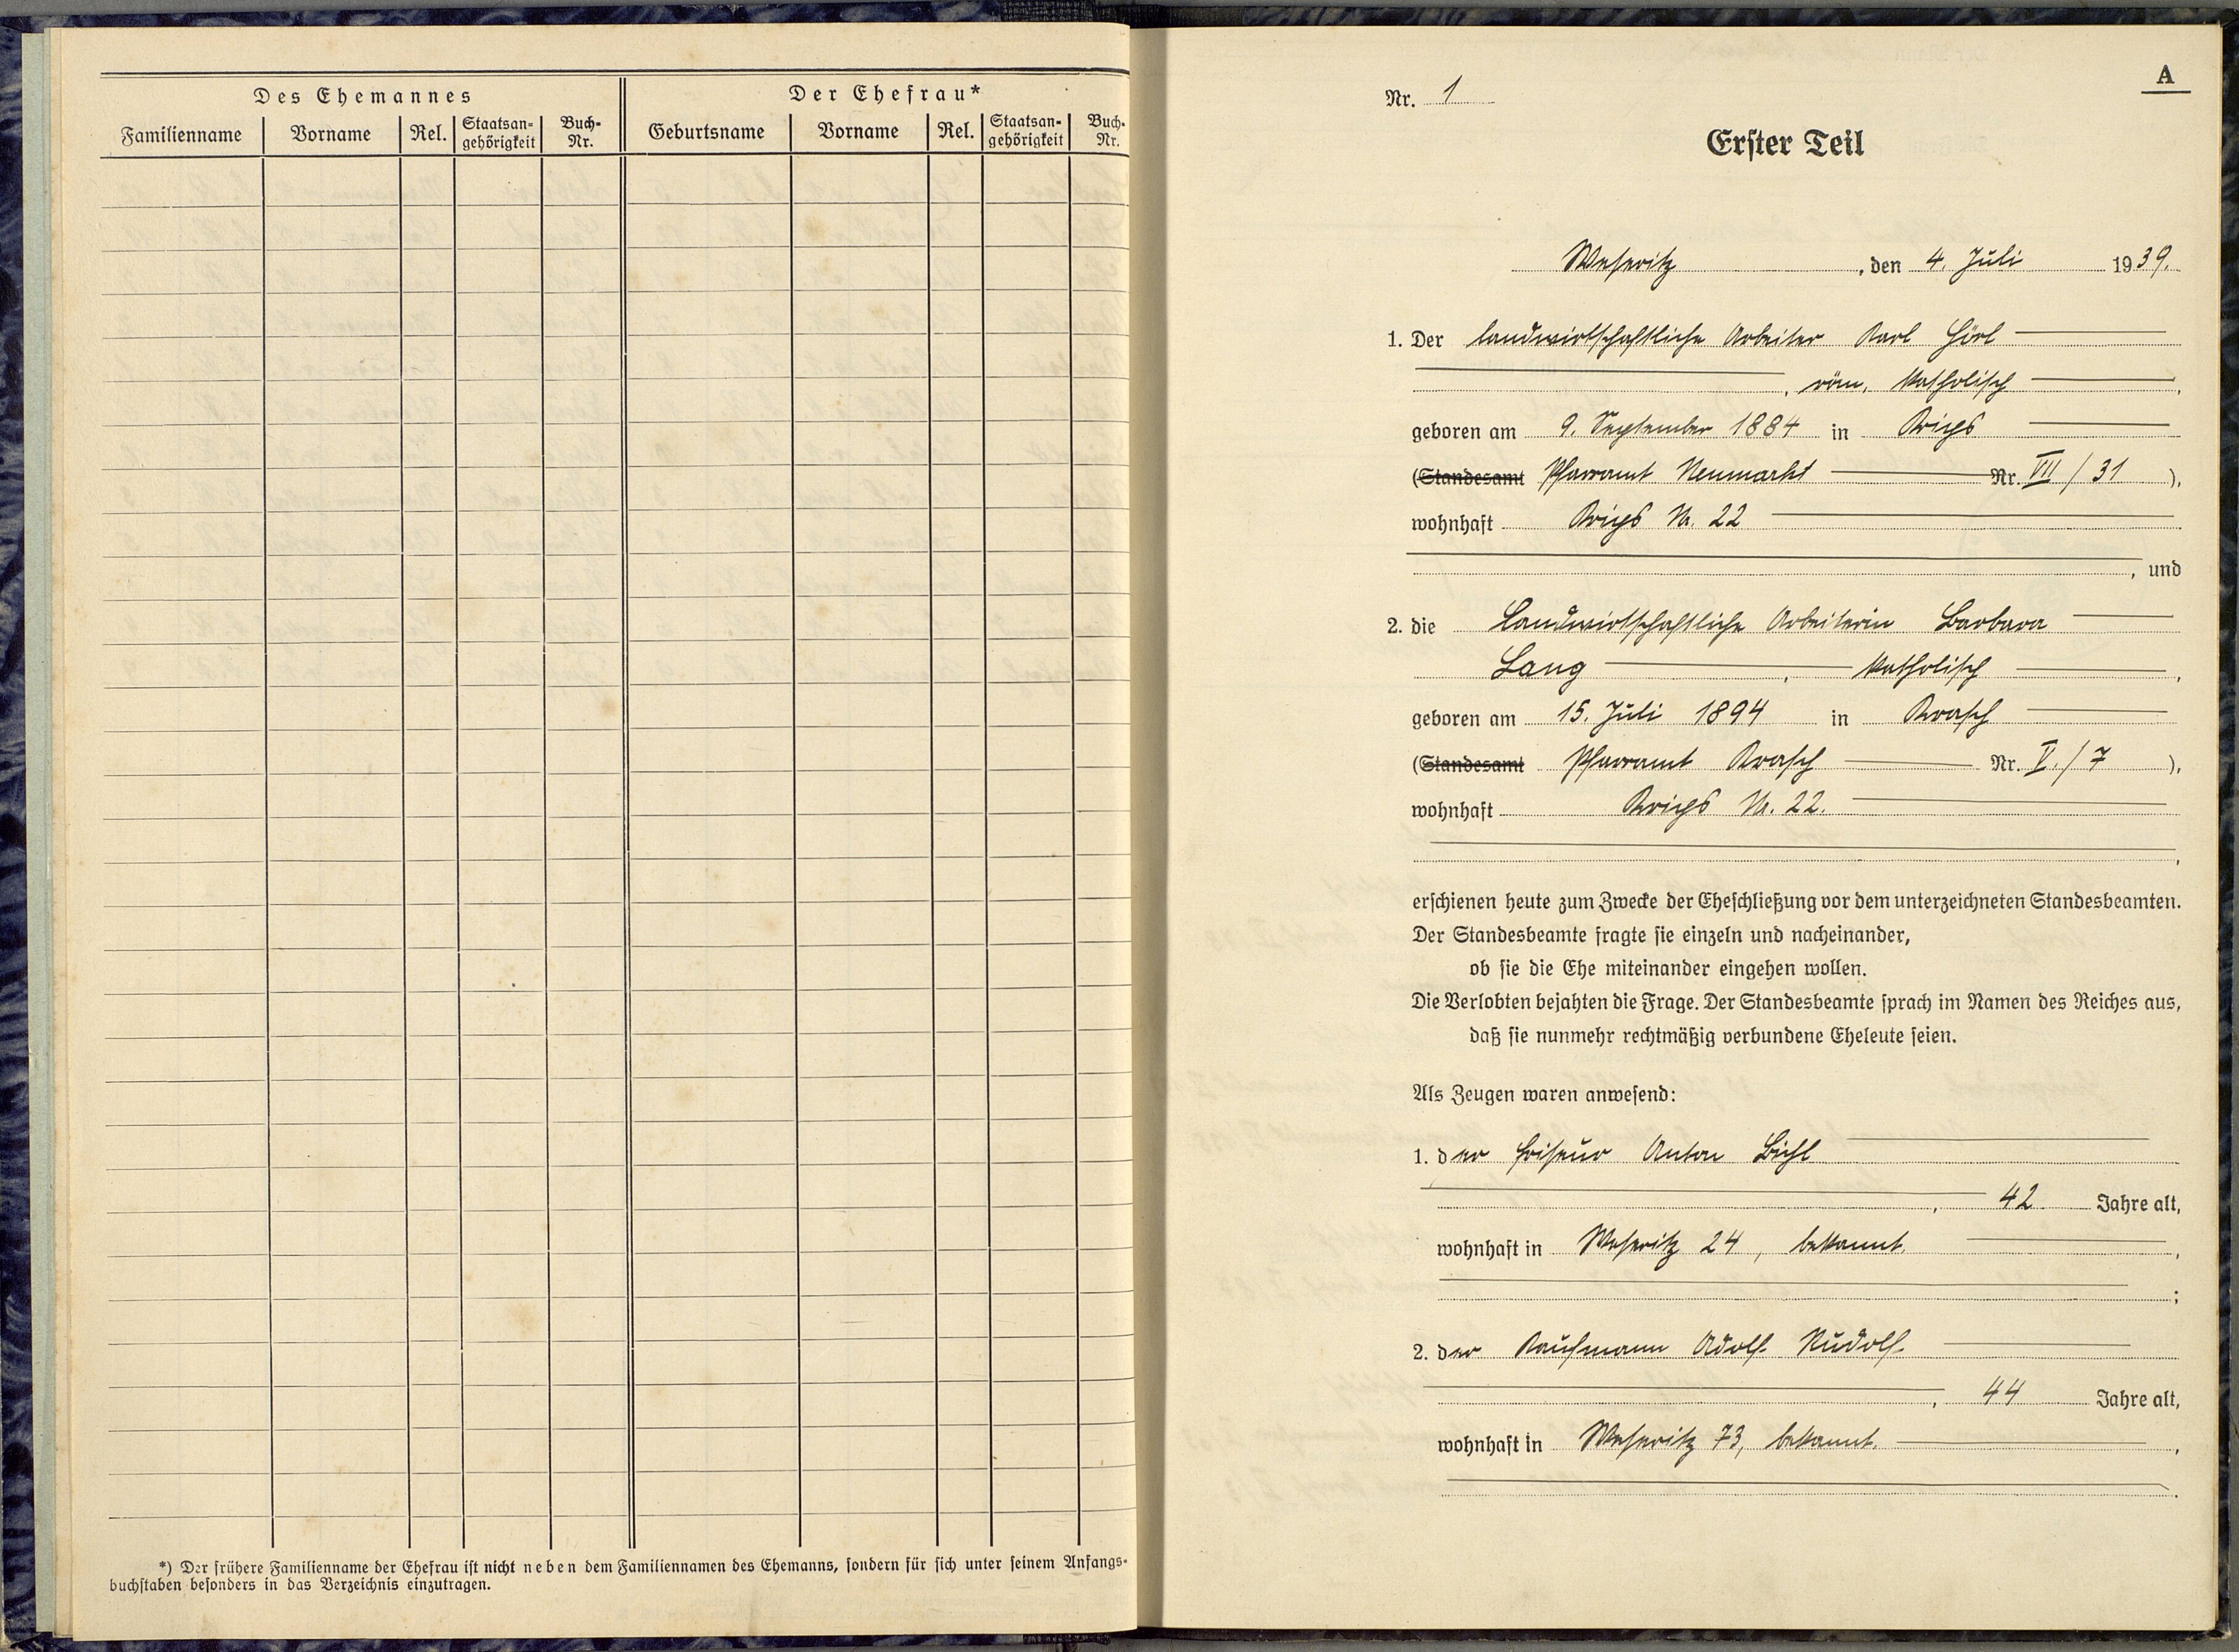 Des Ehemannes
Der Ehefrau*
Familienname Vorname Rel. Staatsan-gehörigkeit Buch-Nr. Geburtsname Vorname Rel. Staatsan-gehörigkeit Buch-Nr.
*) Der frühere Familienname der Ehefrau ist nicht neben dem Familiennamen des Ehemanns, sondern für sich unter seinem Anfangs-
buchstaben besonders in das Verzeichnis einzutragen.
A
Nr. 1
Erster Teil
Weseritz, den 4. Juli 1939.
1. Der landwirtschaftliche Arbeiter Karl Hörl
, röm. katholisch,
geboren am 9. September 1884 in Krips
(Standesamt Pfarramt Neumarkt Nr. VII / 31),
wohnhaft Krips Nr. 22
, und
2. die Landwirtschaftliche Arbeiterin Barbara
Lang, katholisch,
geboren am 15. Juli 1894 in Krasch
(Standesamt Pfarramt Krasch Nr. V. / 7),
wohnhaft Krips Nr. 22.
,
erschienen heute zum Zwecke der Eheschließung vor dem unterzeichneten Standesbeamten.
Der Standesbeamte fragte sie einzeln und nacheinander,
ob sie die Ehe miteinander eingehen wollen.
Die Verlobten bejahten die Frage. Der Standesbeamte sprach im Namen des Reiches aus,
daß sie nunmehr rechtmäßig verbundene Eheleute seien.
Als Zeugen waren anwesend:
1. der Friseur Anton Bihl
, 42 Jahre alt,
wohnhaft in Weseritz 24, bekannt.,
;
2. der Kaufmann Adolf Rudolf
, 44 Jahre alt,
wohnhaft in Weseritz 73, bekannt.,
.